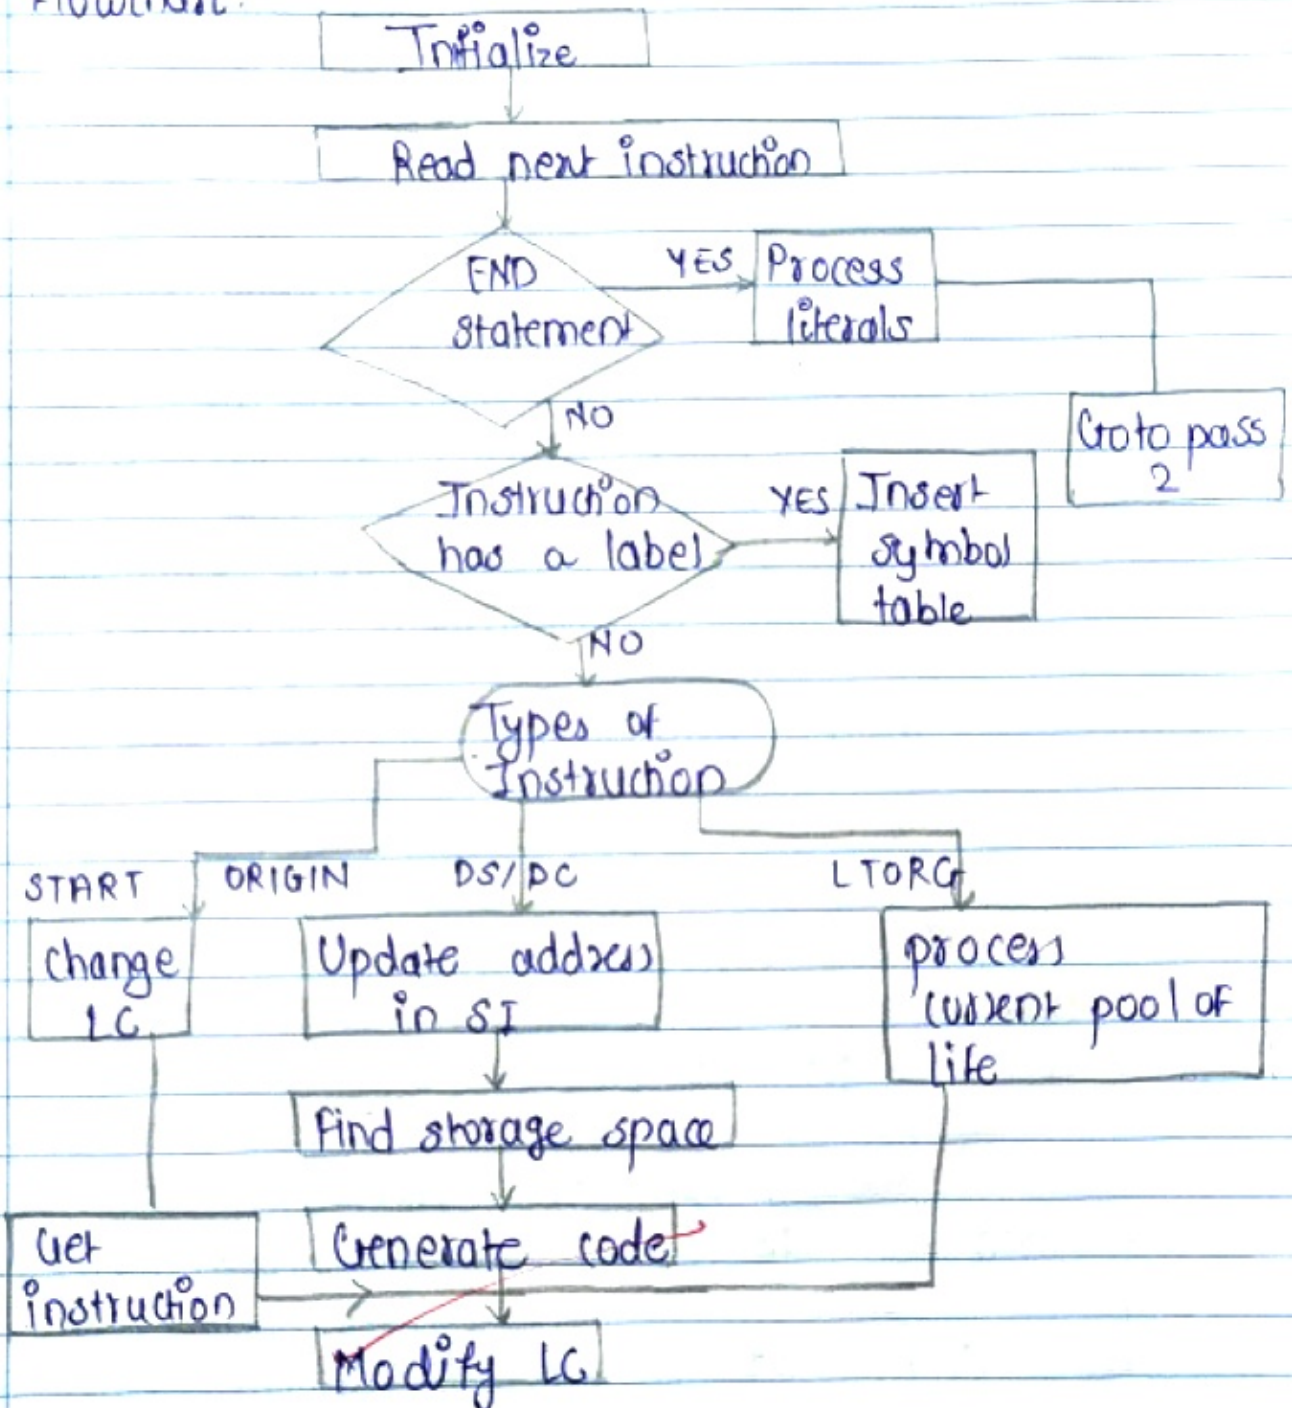 Flowchart:
Initialize
Read next instruction
END
statement
YES
Process
literals
NO
Goto pass
2
Instruction
has a label
YES
Insert
symbol
table
NO
Types of
Instruction
START
ORIGIN
DS/DC
LTORG
Change
LC
Update address
in SI
process
current pool of
life
Find storage space
Get
instruction
Generate code
Modify LC